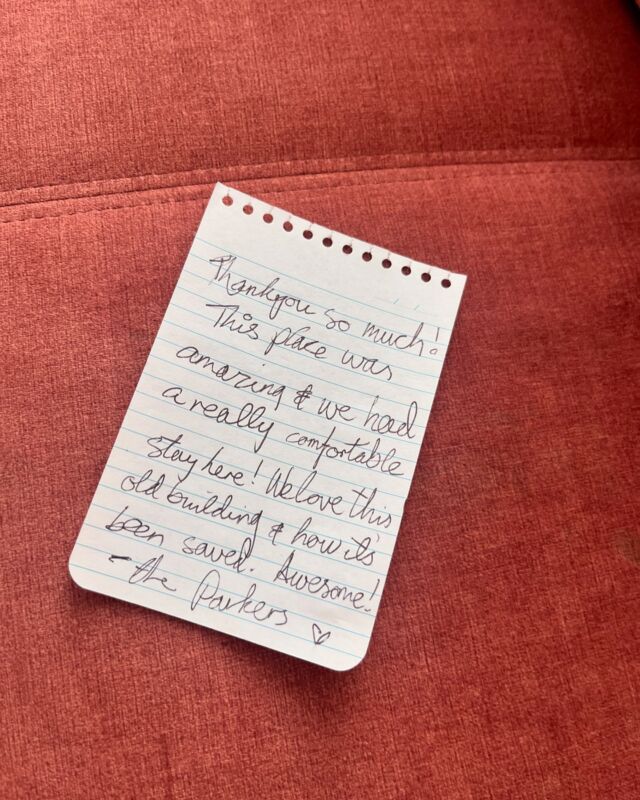 Thankyou so much!
This place was
amazing & we had
a really comfortable
stay here! We love this
old building & how it's
been saved. Awesome!
- the Parkers ♡